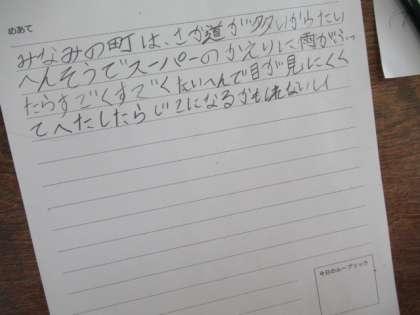 めあて
みなみの町は、さか道が多いからたい
へんそうでスーパーのかえりに雨がふっ
たらすごくすごくたいへんで目が見にくく
てへたしたらじこになるかもしれないし
今日のルーブリック